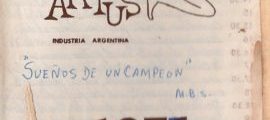 INDUSTRIA ARGENTINA
"SUEÑOS DE UN CAMPEON"
M.B.S.